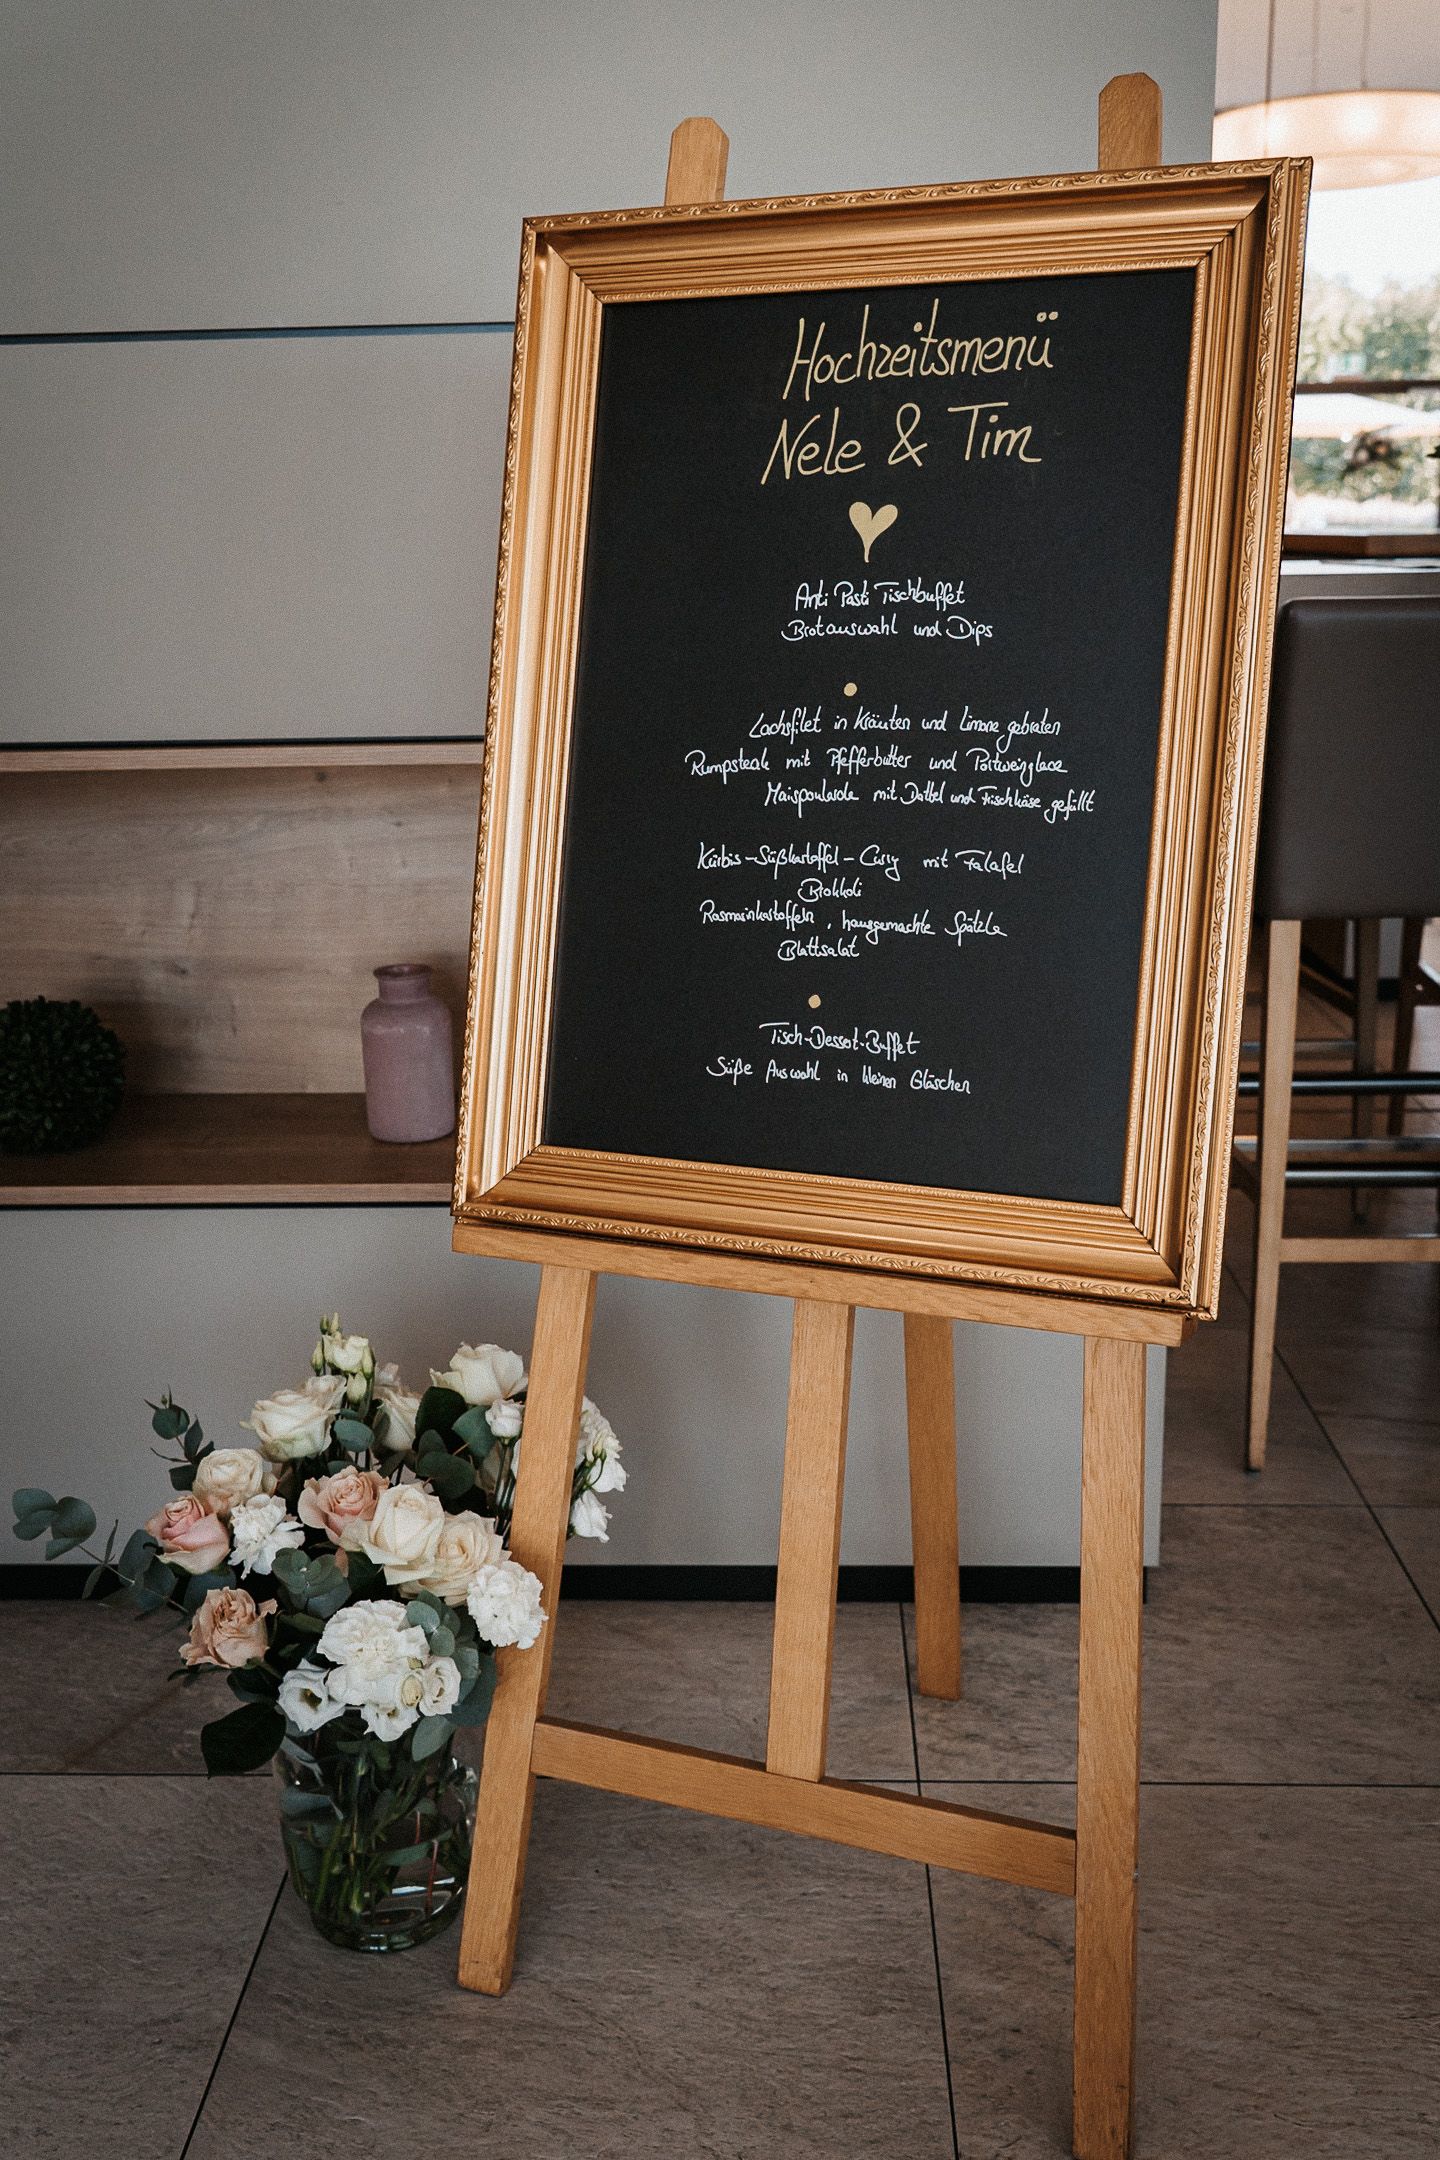 Hochzeitsmenü
Nele & Tim
Anti Pasti Tischbuffet
Brotauswahl und Dips
Lachsfilet in Kräuten und Limone gebraten
Rumpsteak mit Pfefferbutter und Portweinglace
Maispoularde mit Dattel und Frischkäse gefüllt
Kürbis-Süßkartoffel-Curry mit Falafel
Brokkoli
Rosmarinkartoffeln, hausgemachte Spätzle
Blattsalat
Tisch-Dessert-Buffet
Süße Auswahl in kleinen Gläschen